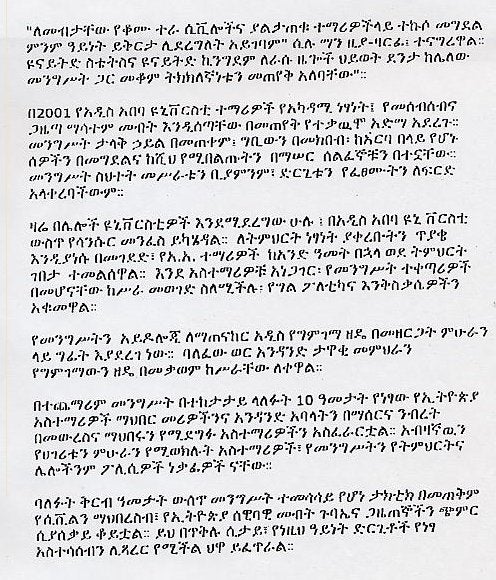 "ለመብታቸው የቆሙ ተራ ሲቪሎችና ያልታጠቁ ተማሪዎችላይ ተኩሶ መግደል
ምንም ዓይነት ይቅርታ ሊደረግለት አይገባም" ሲሉ ማን ቢያ-ባርፊ፤ ተናግረዋል።
ዩናይትድ ስቴትስና ዩናይትድ ኪንግደም ለራሱ ዜጎች ህይወት ደንታ ከሌለው
መንግሥት ጋር መቆም ትክክለኛነቱን መጠየቅ አለባቸው"።
በ2001 የአዲስ አበባ ዩኒቨርስቲ ተማሪዎች የአካዳሚ ነፃነት፤ የመሰብሰብና
ጋዜጣ ማሳተም መብት እንዲሰጣቸው በመጠየቅ የተቃዉሞ አድማ አደረጉ።
መንግሥት ታላቅ ኃይል በመጠተም፤ ግቢውን በመክበብ፡ ከአርባ በላይ የሆኑ
ሰዎችን በመግደልና ከሺህ የሚበልጡትን በማሠር ሰልፈኞቹን በተኗቸው።
መንግሥት ስህተት መሥራቱን ቢያምንም፣ ድርጊቱን የፈፀሙትን ለፍርድ
አላቀረባቸውም።
ዛሬ በሌሎች ዩኒቨርስቲዎች እንደሚደረግው ሁሉ ፤ በአዲስ አበባ ዩኒ ቨርስቲ
ውስጥ የሳንሱር መንፈስ ይካሄዳል። ለትምህርት ነፃነት ያቀረቡትን ጥያቄ
እንዲያነሱ በመገደድ፣ የአ.አ. ተማሪዎች ከአንድ ዓመት በኋላ ወደ ትምህርት
ገበታ ተመልሰዋል። እንደ አስተማሪዎቹ አነጋገር፡ የመንግሥት ተቀጣሪዎች
በመሆናቸው ከሥራ መወገድ ስለሚችሉ፡ የግል ፖለቲካና እንቅስቃሴዎችን
አቁመዋል።
የመንግሥትን አይዶሎጂ ለማጠናከር አዲስ የግምገማ ዘዴ በመዘርጋት ምሁራን
ላይ ግፊት እያደረገ ነው። ባለፈው ወር አንዳንድ ታዋቂ መምህራን
የግምገማውን ዘዴ በመቃወም ከሥራቸው ለቀዋል።
በተጨማሪም መንግሥት በተከታታይ ላለፉት 10 ዓመታት የነፃው የኢትዮጵያ
አስተማሪዎች ማህበር መሪዎችንና አንዳንድ አባላትን በማሰርና ንብረት
በመውረስና ማህበሩን የሚደግፉ አስተማሪዎችን አስፈራርቷል። አብዛኛዉን
የሀገሪቱን ምሁራን የሚወክሉት አስተማሪዎች፣ የመንግሥትን የትምህርትና
ሌሎችንም ፖሊሲዎች ነቃፊዎች ናቸው።
ባለፉት ቅርብ ዓመታት ውስጥ መንግሥት ተመሳሳይ የሆነ ታክቲክ በመጠቅም
የሲቪልን ማህበረስብ፣ የኢትዮጵያ ሰዊባዊ መብት ጉባኤና ጋዜጠኞችን ጭምር
ሲያሰቃይ ቆይቷል። ይህ በጥቅሉ ሲታይ፣ የነዚህ ዓይነት ድርጊቶች የነፃ
አስተሳሰብን ሊጻረር የሚችል ህዋ ይፈጥራል።